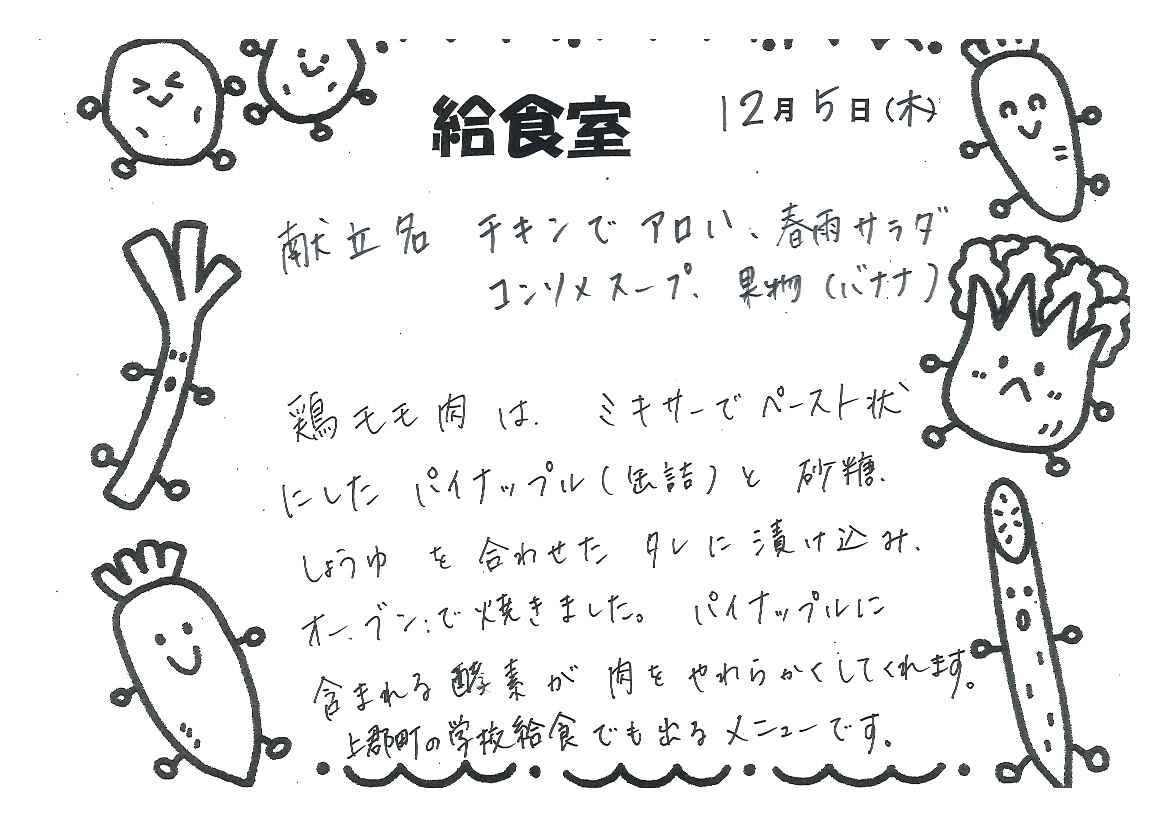 給食室
12月5日(木)
献立名 チキンでアロハ、春雨サラダ
コンソメスープ、果物(バナナ)
鶏モモ肉は、ミキサーでペースト状
にしたパイナップル(缶詰)と砂糖、
しょうゆを合わせたタレに漬け込み、
オーブンで焼きました。パイナップルに
含まれる酵素が肉をやわらかくしてくれます。
上郡町の学校給食でも出るメニューです。